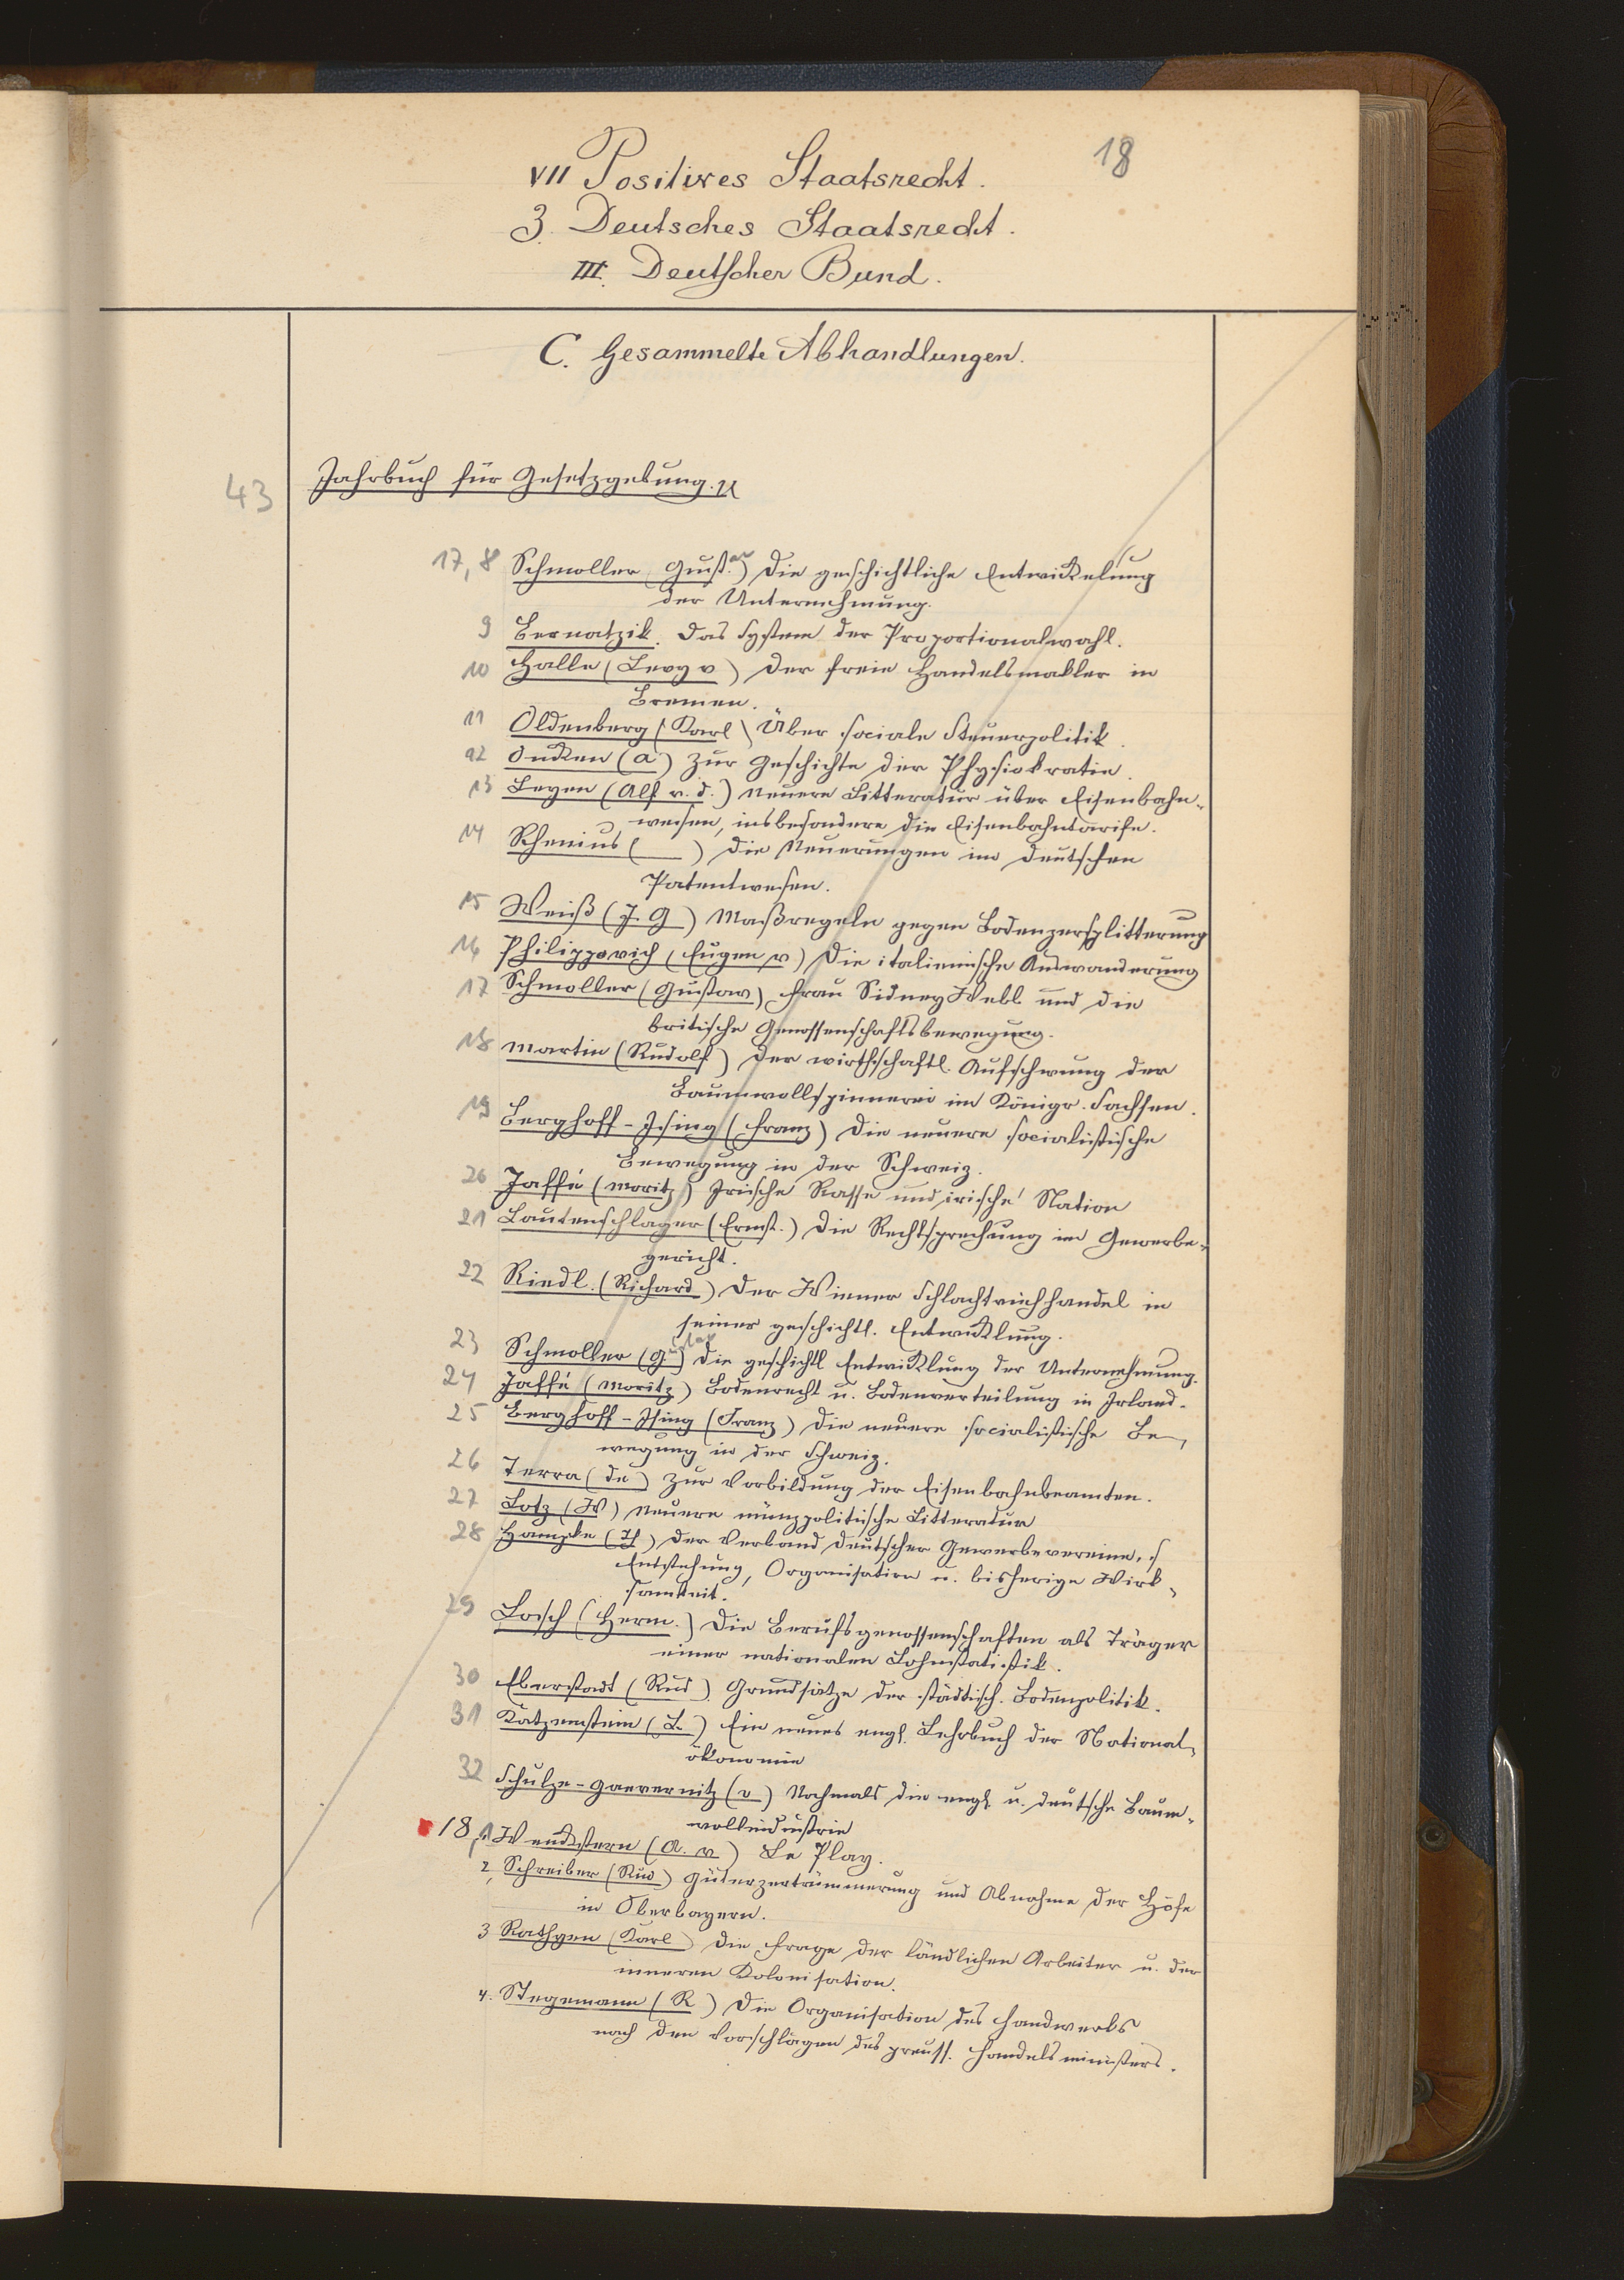 18
VII Positives Staatsrecht.
3. Deutsches Staatsrecht.
III. Deutscher Bund.
C. Gesammelte Abhandlungen.
43 Jahrbuch für Gesetzgebung.
17, 8 Schmoller (Gustav) Die geschichtliche Entwickelung
der Unternehmung.
9 Bernatzik. Das System der Proportionalwahl.
10 Halle (Levy v) Der freie Handelsmakler in
Bremen.
11 Oldenberg (Karl) Über sociale Steuerpolitik.
12 Oncken (A) Zur Geschichte der Physiokratie.
13 Leyen (Alf v. d.) Neuere Litteratur über Eisenbahn-
wesen, insbesondere die Eisenbahntarife.
14 Rhenius ( ) Die Neuerungen im deutschen
Patentwesen.
15 Weiß (J. G) Maßregeln gegen Bodenzersplitterung
16 Philippovich (Eugen v) Die italienische Auswanderung
17 Schmoller (Gustav) Frau Sidney Webb und die
britische Genossenschaftsbewegung.
18 Martin (Rudolf) Der wirthschaftl. Aufschwung der
Baumwollspinnerei im Königr. Sachsen.
19 Berghoff-Ising (Franz) Die neuere socialistische
Bewegung in der Schweiz.
20 Jaffé (Moritz) Irische Rasse und irische Nation
21 Lautenschlager (Ernst.) Die Rechtsprechung im Gewerbe-
gericht.
22 Riedl. (Richard) Der Wiener Schlachtviehhandel in
seiner geschichtl. Entwicklung.
23 Schmoller (Gustav) Die geschichtl Entwicklung der Unternehmung.
24 Jaffé (Moritz) Bodenrecht u. Bodenverteilung in Irland.
25 Berghoff-Ising (Franz) Die neuere socialistische Be-
wegung in der Schweiz.
26 Terra (de) Zur Vorbildung der Eisenbahnbeamten.
27 Lotz (W) Neuere münzpolitische Litteratur
28 Hampke (Th) Der Verband deutscher Gewerbevereine, s
Entstehung, Organisation u. bisherige Wirk-
samkeit.
29 Losch (Herm.) Die Berufsgenossenschaften als Träger
einer nationalen Lohnstatistik.
30 Eberstadt (Rud) Grundsätze der städtisch. Bodenpolitik.
31 Katzenstein (L.) Ein neues engl. Lehrbuch der National-
ökonomie
32 Schulze-Gaevernitz (v) Nochmals die engl u. deutsche Baum-
wollindustrie
18, 1 Wenckstern (A. v) Le Play.
2, Schreiber (Rud) Güterzertrümmerung und Abnahme der Höfe
in Oberbayern.
3 Rathgen (Karl) Die Frage der ländlichen Arbeiter u. der
inneren Kolonisation.
4. Stegemann (R) Die Organisation des Handwerks
nach den Vorschlägen des preuss. Handelsministers.